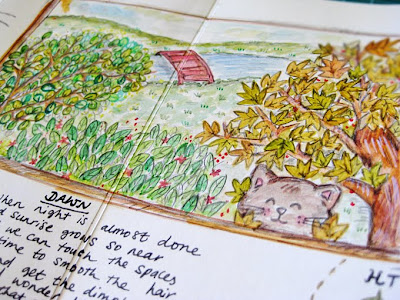 DAWN
When night is almost done
d sunrise grows so near
we can touch the spaces
time to smooth the hair
nd get the dimp
wonder
that
HT